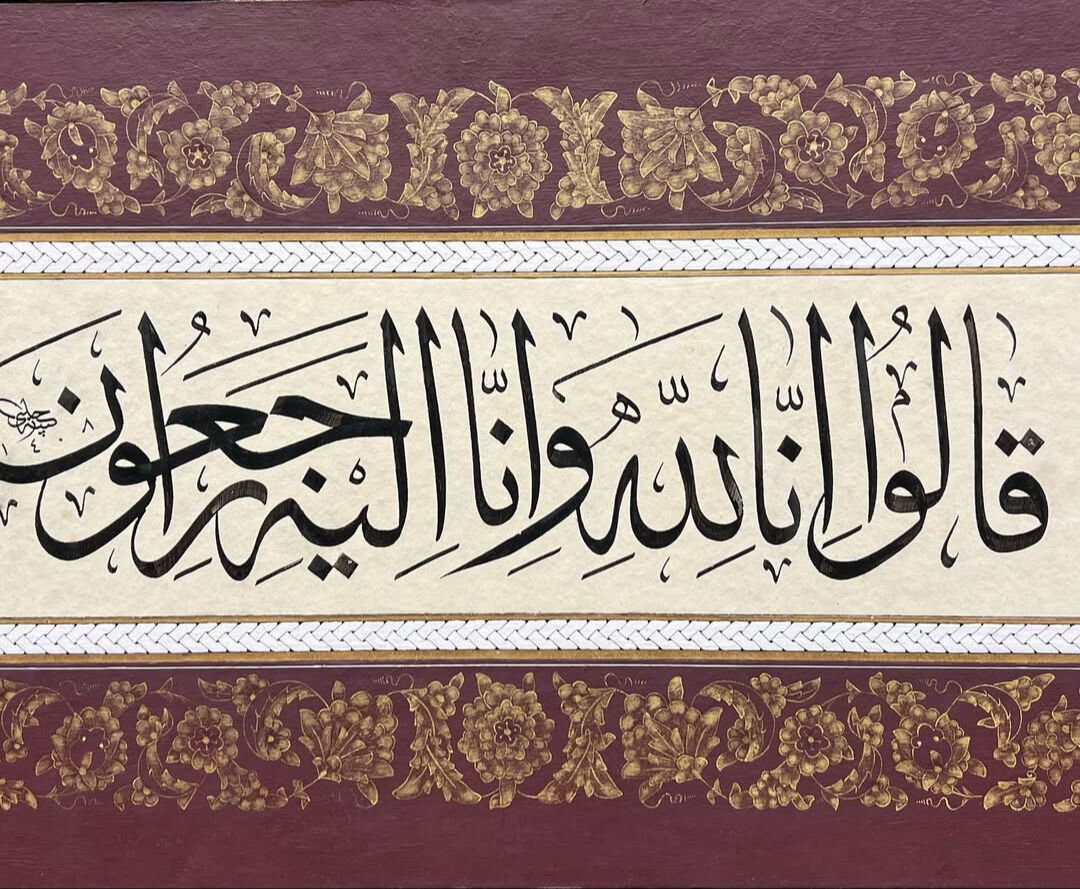 قالوا إنّا للّهِ وإنّا إليْهِ راجعون